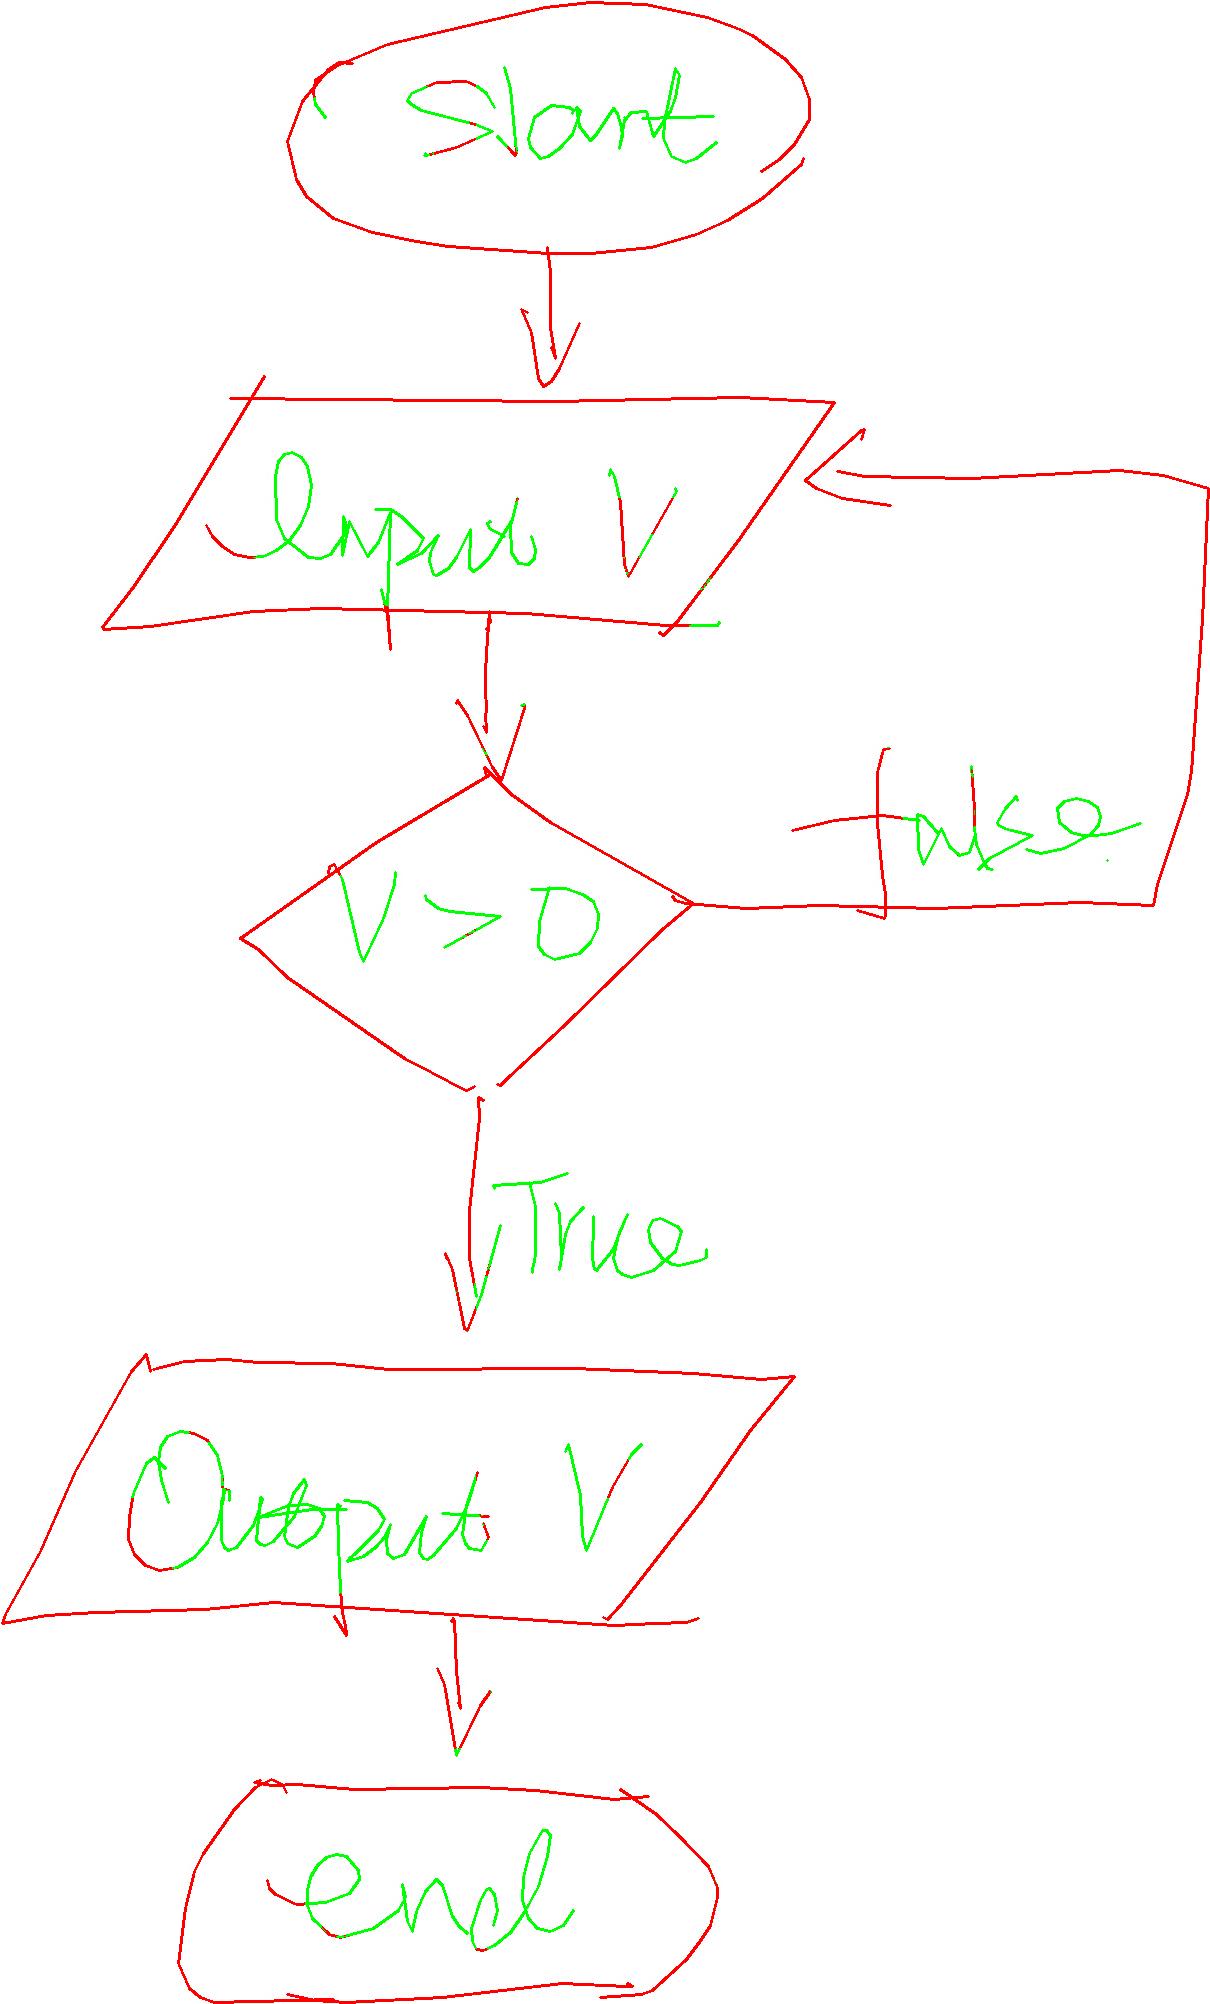 Start
Input V
V > 0
false
True
Output V
end